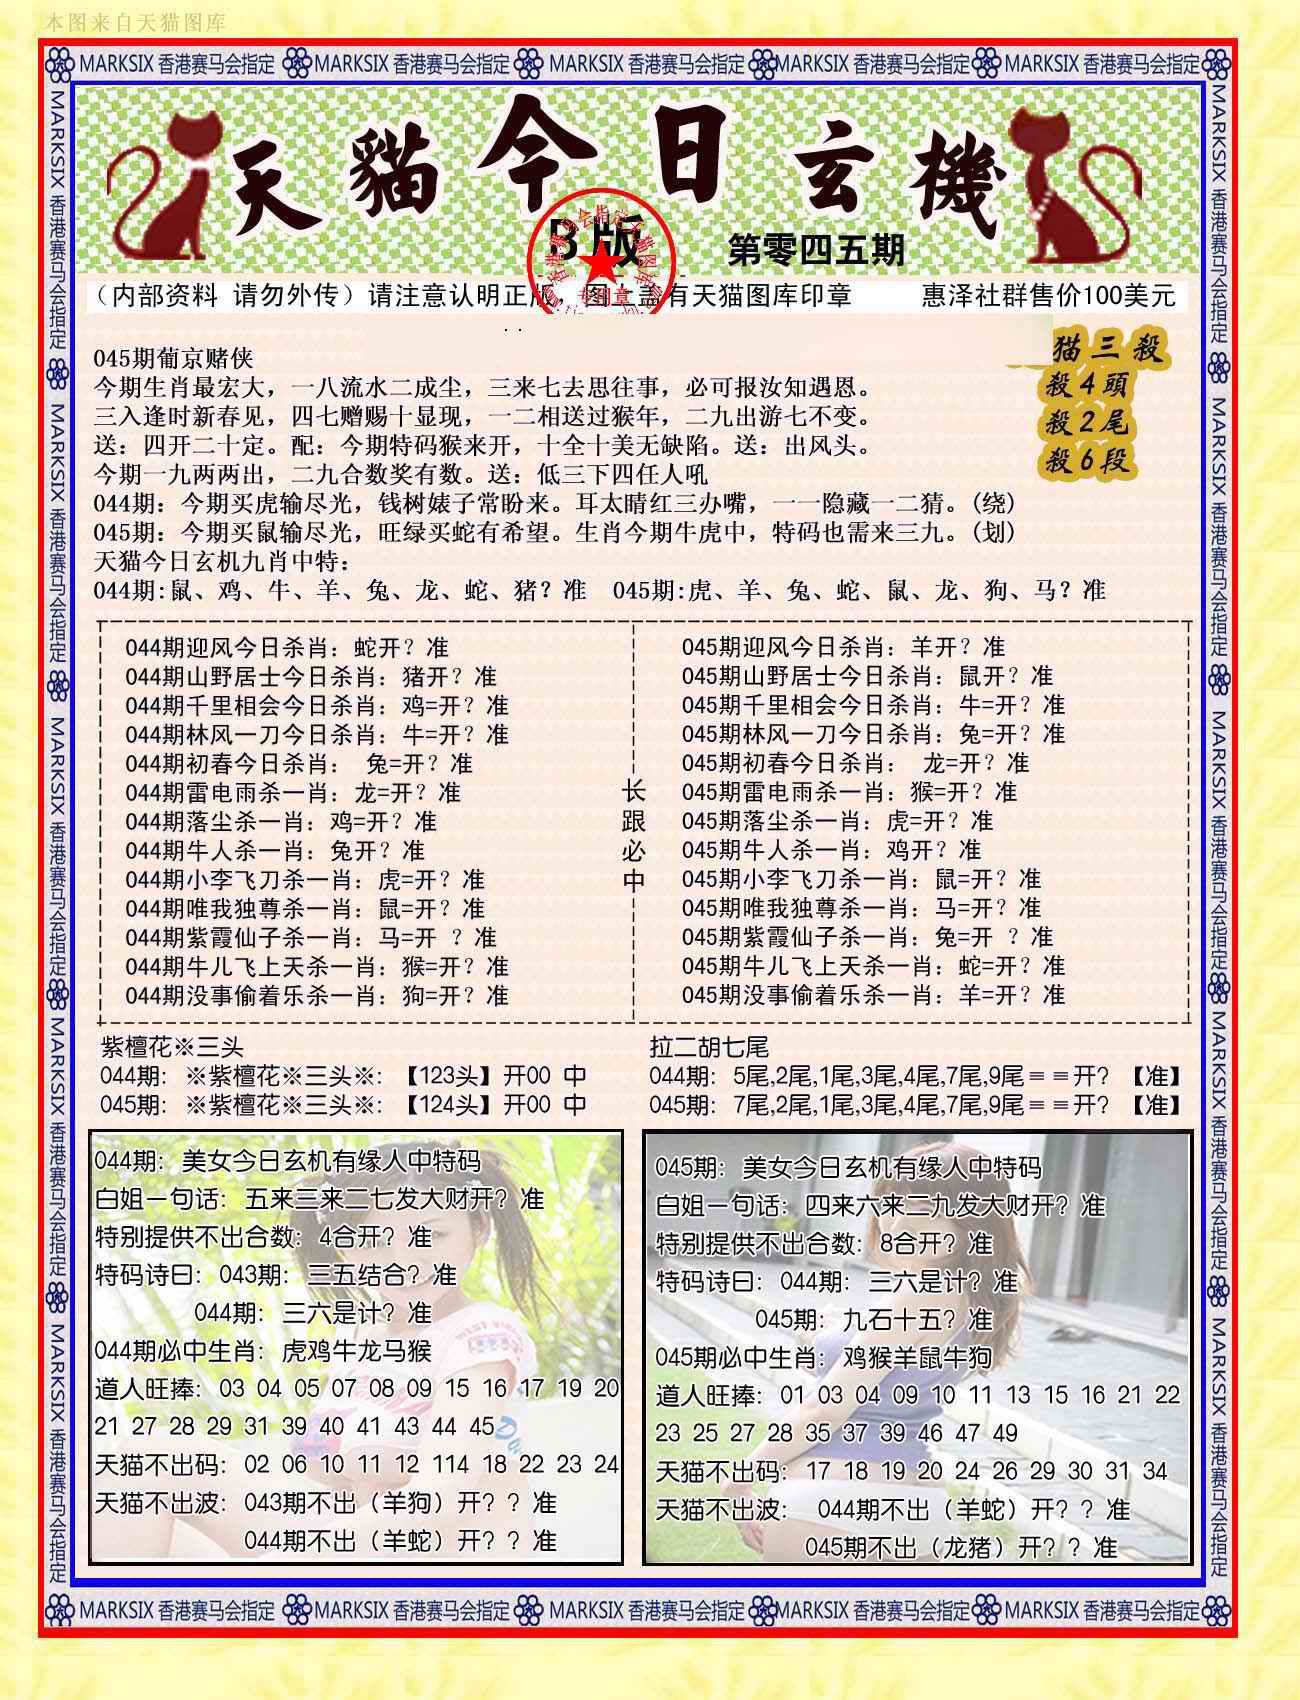 本图来自天猫图库
MARKSIX 香港赛马会指定 MARKSIX 香港赛马会指定 MARKSIX 香港赛马会指定 MARKSIX 香港赛马会指定 MARKSIX 香港赛马会指定
天貓今日玄機
B版
第零四五期
专用章
（内部资料 请勿外传）请注意认明正版，图上盖有天猫图库印章 惠泽社群售价100美元
猫三殺
殺4頭
殺2尾
殺6段
045期葡京赌侠
今期生肖最宏大，一八流水二成尘，三来七去思往事，必可报汝知遇恩。
三入逢时新春见，四七赠赐十显现，一二相送过猴年，二九出游七不变。
送：四开二十定。配：今期特码猴来开，十全十美无缺陷。送：出风头。
今期一九两两出，二九合数奖有数。送：低三下四任人吼
044期：今期买虎输尽光，钱树婊子常盼来。耳太晴红三办嘴，一一隐藏一二猜。(绕)
045期：今期买鼠输尽光，旺绿买蛇有希望。生肖今期牛虎中，特码也需来三九。(划)
天猫今日玄机九肖中特：
044期:鼠、鸡、牛、羊、兔、龙、蛇、猪？准 045期:虎、羊、兔、蛇、鼠、龙、狗、马？准
044期迎风今日杀肖：蛇开？准
044期山野居士今日杀肖：猪开？准
044期千里相会今日杀肖：鸡=开？准
044期林风一刀今日杀肖：牛=开？准
044期初春今日杀肖： 兔=开？准
044期雷电雨杀一肖：龙=开？准
044期落尘杀一肖：鸡=开？准
044期牛人杀一肖：兔开？准
044期小李飞刀杀一肖：虎=开？准
044期唯我独尊杀一肖：鼠=开？准
044期紫霞仙子杀一肖：马=开 ？准
044期牛儿飞上天杀一肖：猴=开？准
044期没事偷着乐杀一肖：狗=开？准
长跟必中
045期迎风今日杀肖：羊开？准
045期山野居士今日杀肖：鼠开？准
045期千里相会今日杀肖：牛=开？准
045期林风一刀今日杀肖：兔=开？准
045期初春今日杀肖： 龙=开？准
045期雷电雨杀一肖：猴=开？准
045期落尘杀一肖：虎=开？准
045期牛人杀一肖：鸡开？准
045期小李飞刀杀一肖：鼠=开？准
045期唯我独尊杀一肖：马=开？准
045期紫霞仙子杀一肖：兔=开 ？准
045期牛儿飞上天杀一肖：蛇=开？准
045期没事偷着乐杀一肖：羊=开？准
紫檀花※三头
044期：※紫檀花※三头※：【123头】开00 中
045期：※紫檀花※三头※：【124头】开00 中
拉二胡七尾
044期：5尾,2尾,1尾,3尾,4尾,7尾,9尾≡≡开？【准】
045期：7尾,2尾,1尾,3尾,4尾,7尾,9尾≡≡开？【准】
044期：美女今日玄机有缘人中特码
白姐一句话：五来三来二七发大财开？准
特别提供不出合数：4合开？准
特码诗曰：043期：三五结合？准
044期：三六是计？准
044期必中生肖：虎鸡牛龙马猴
道人旺捧：03 04 05 07 08 09 15 16 17 19 20
21 27 28 29 31 39 40 41 43 44 45
天猫不出码：02 06 10 11 12 114 18 22 23 24
天猫不出波：043期不出（羊狗）开？？准
044期不出（羊蛇）开？？准
045期：美女今日玄机有缘人中特码
白姐一句话：四来六来二九发大财开？准
特别提供不出合数：8合开？准
特码诗曰：044期：三六是计？准
045期：九石十五？准
045期必中生肖：鸡猴羊鼠牛狗
道人旺捧：01 03 04 09 10 11 13 15 16 21 22
23 25 27 28 35 37 39 46 47 49
天猫不出码：17 18 19 20 24 26 29 30 31 34
天猫不出波： 044期不出（羊蛇）开？？准
045期不出（龙猪）开？？准
MARKSIX 香港赛马会指定 MARKSIX 香港赛马会指定 MARKSIX 香港赛马会指定 MARKSIX 香港赛马会指定 MARKSIX 香港赛马会指定
MARKSIX 香港赛马会指定 MARKSIX 香港赛马会指定 MARKSIX 香港赛马会指定 MARKSIX 香港赛马会指定 MARKSIX 香港赛马会指定
MARKSIX 香港赛马会指定 MARKSIX 香港赛马会指定 MARKSIX 香港赛马会指定 MARKSIX 香港赛马会指定 MARKSIX 香港赛马会指定